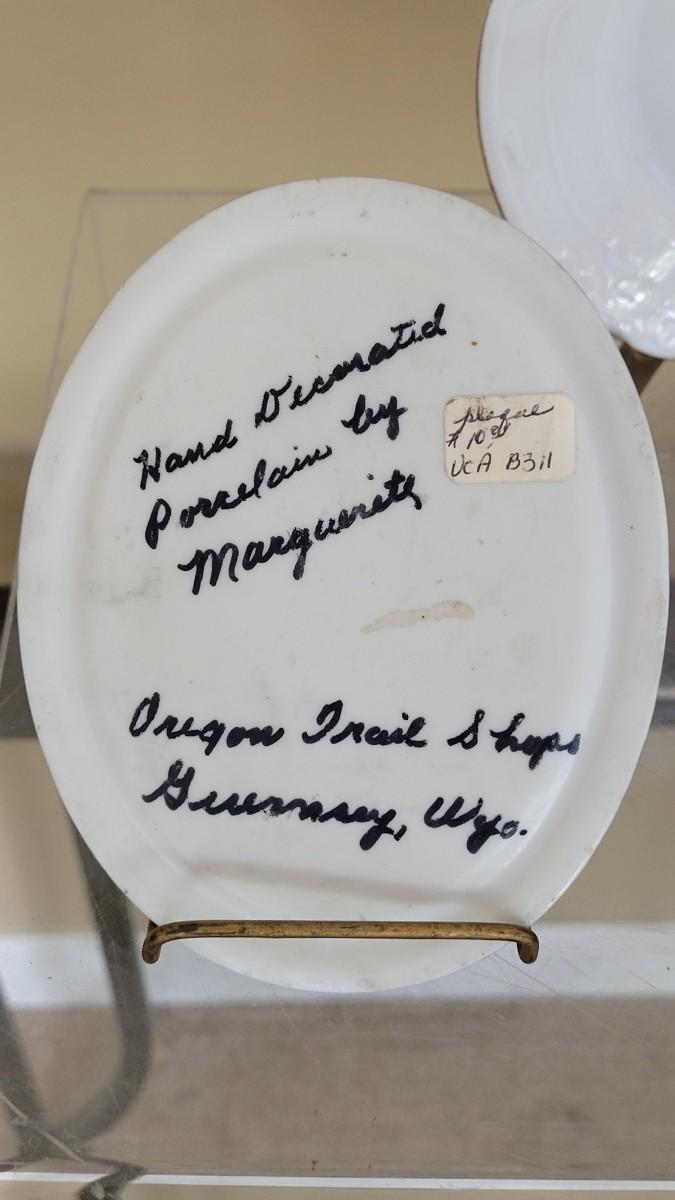 Hand Decorated
Porcelain by
Marguerite
plaque
$10.00
UCA B311
Oregon Trail Shops
Guernsey, Wyo.